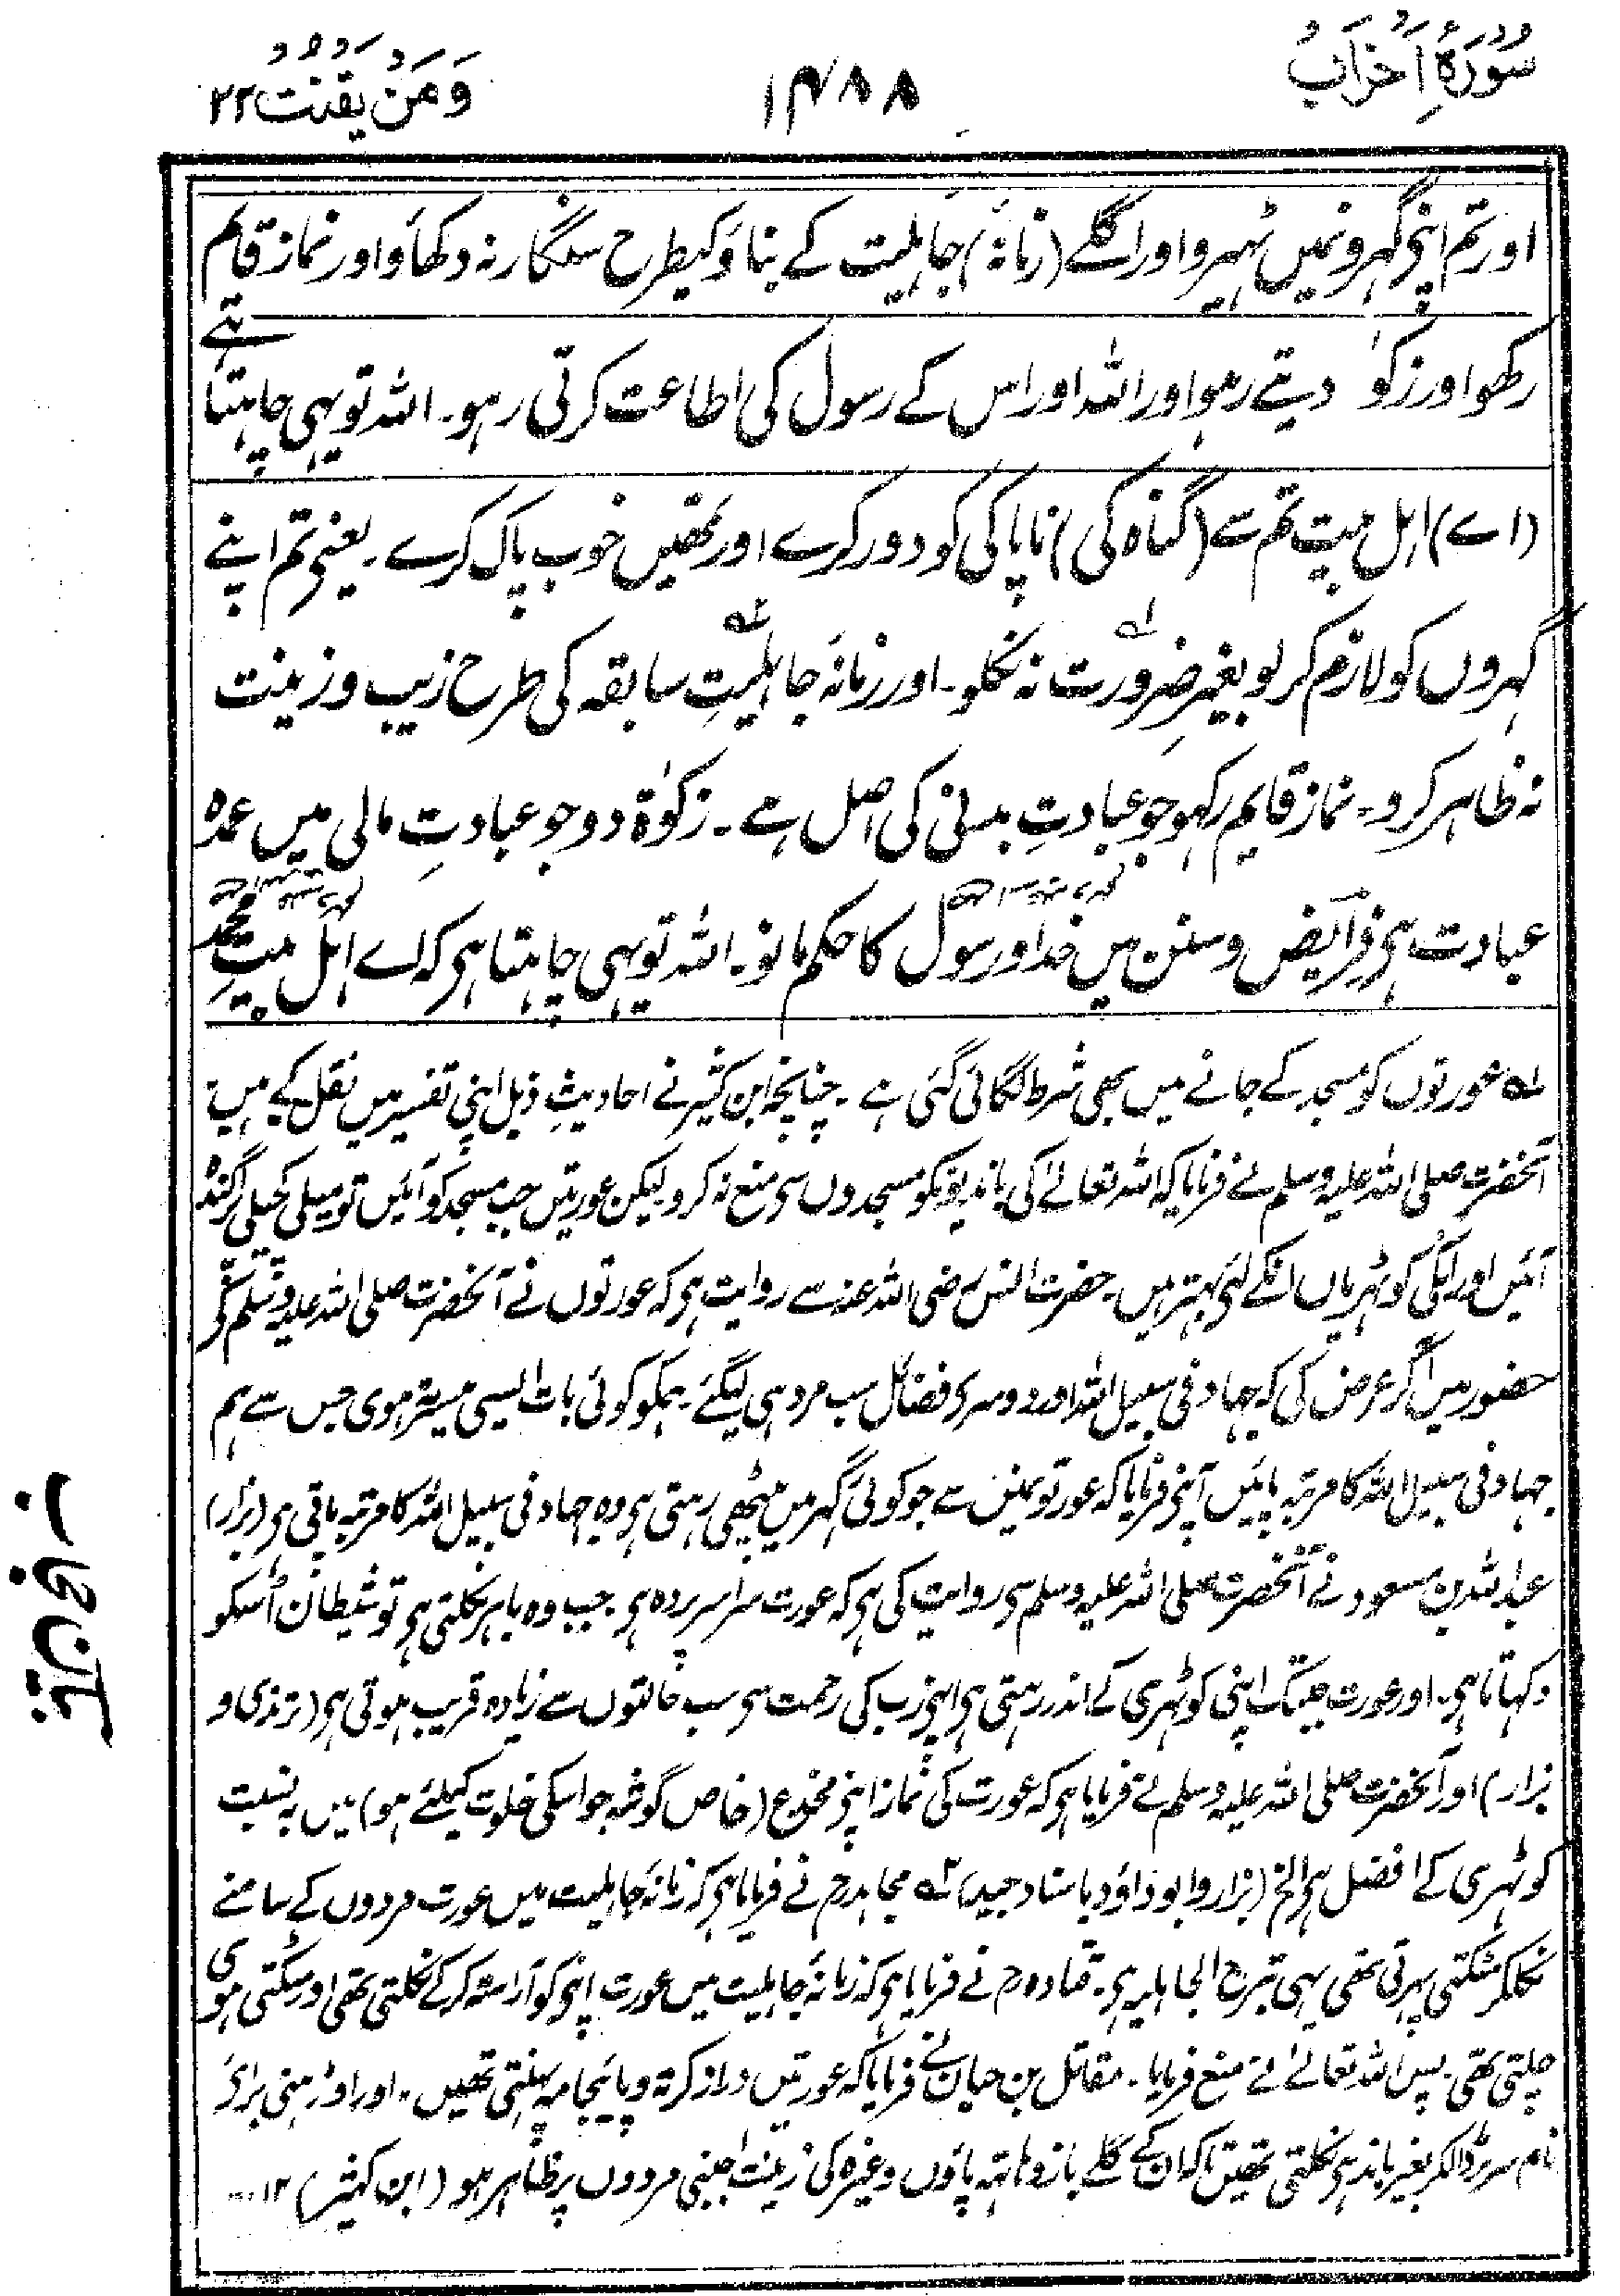 سُوْرَۂِ اَحْزَابْ
۱۴۸۸
وَمَنْ یَقْنُتْ ۲۲
اور تم اپنی گہرونمیں ٹہیرو اور اگلے (زمانۂ) جاہلیت کے بناؤ کیطرح سنگار نہ دکھاؤ اور نماز قائم
رکھو اور زکوٰ دیتے رہو اور اللہ اور اس کے رسول کی اطاعت کرتی رہو۔ اللہ تو یہی چاہتا ہے
(اے) اہل بیت تم سے (گناہ کی) ناپاکی کو دور کرے اور تمھیں خوب پاک کرے۔ یعنی تم اپنے
گہروں کو لازم کر لو بغیرِ ضرورت ۱؎ نہ نکلو۔ اور زمانۂ جاہلیتِ ۲؎ سابقہ کی طرح زیب و زینت
نہ ظاہر کرو۔ نماز قایم رکہو جو عبادتِ بدنی کی اصل ہے۔ زکوٰۃ دو جو عبادتِ مالی میں عمدہ
عبادت ہی فرایض و سنن میں خدا و رسول کا حکم مانو۔ اللہ تو یہی چاہتا ہی کہ اے اہل بیتِ محمد
۱؎ عورتوں کو مسجد کے جانے میں بھی شرط لگائی گئی ہے۔ چنانچہ ابن کثیر نے احادیثِ ذیل اپنی تفسیر میں نقل کیے ہیں:
آنحضرت صلی اللہ علیہ وسلم نے فرمایا کہ اللہ تعالےٰ کی باندیونکو مسجدوں سی منع نہ کرو لیکن عورتیں جب مسجد کو آئیں تو میلی کچیلی گندہ
آئیں اور انکی کوٹہریاں انکے لئی بہتر ہیں۔ حضرت انس رضی اللہ عنہ سے روایت ہی کہ عورتوں نے آنحضرت صلی اللہ علیہ وسلم کی
حضور میں آکر عرض کی کہ جہاد فی سبیل اللہ اور دوسری فضائل سب مرد ہی لیگئے۔ ہمکو کوئی بات ایسی میسر نہوی جس سے ہم
جہاد فی سبیل اللہ کا مرتبہ پائیں آپنی فرمایا کہ عورتونمیں سے جو کوئی گہر میں بیٹھی رہتی ہی وہ جہاد فی سبیل اللہ کا مرتبہ پاتی ہی (بزار)
عبداللہ بن مسعود نے آنحضرت صلی اللہ علیہ وسلم سی روایت کی ہی کہ عورت سراسر پردہ ہی۔ جب وہ باہر نکلتی ہی تو شیطان اُسکو
دکہاتا ہی۔ اور عورت جبتک اپنی کوٹہری کے اندر رہتی ہی اپنی رب کی رحمت سی سب حالتوں سے زیادہ قریب ہوتی ہی (ترمذی و
بزار) اور آنحضرت صلی اللہ علیہ وسلم نے فرمایا ہی کہ عورت کی نماز اپنی مخدع (خاص گوشہ جو اسکی خلوت کیلئے ہو) میں بہ نسبت
کوٹہری کے افضل ہی الخ (بزار و ابو داؤد باسناد جید) ۲؎ مجاہدؒ نے فرمایا ہی کہ زمانۂ جاہلیت میں عورت مردوں کے سامنے
نکلکر مٹکتی پہرتی تھی یہی تبرج الجاہلیہ ہی۔ قتادہؒ نے فرمایا ہی کہ زمانۂ جاہلیت میں عورت اپنی کو آراستہ کر کے نکلتی تھی اور مٹکتی ہوی
چلتی تھی۔ پس اللہ تعالےٰ نے منع فرمایا۔ مقاتل بن حیان نے فرمایا کہ عورتیں دراز کرتہ و پائیجامہ پہنتی تھیں۔ اور اوڑہنی برائے
نام سر پر ڈالکر بغیر باندہی نکلتی تھیں تاکہ ان کے گلے بازو ہاتہہ پاؤں وغیرہ کی زینت اجنبی مردوں پر ظاہر ہو (ابن کثیر) ۱۲ ...